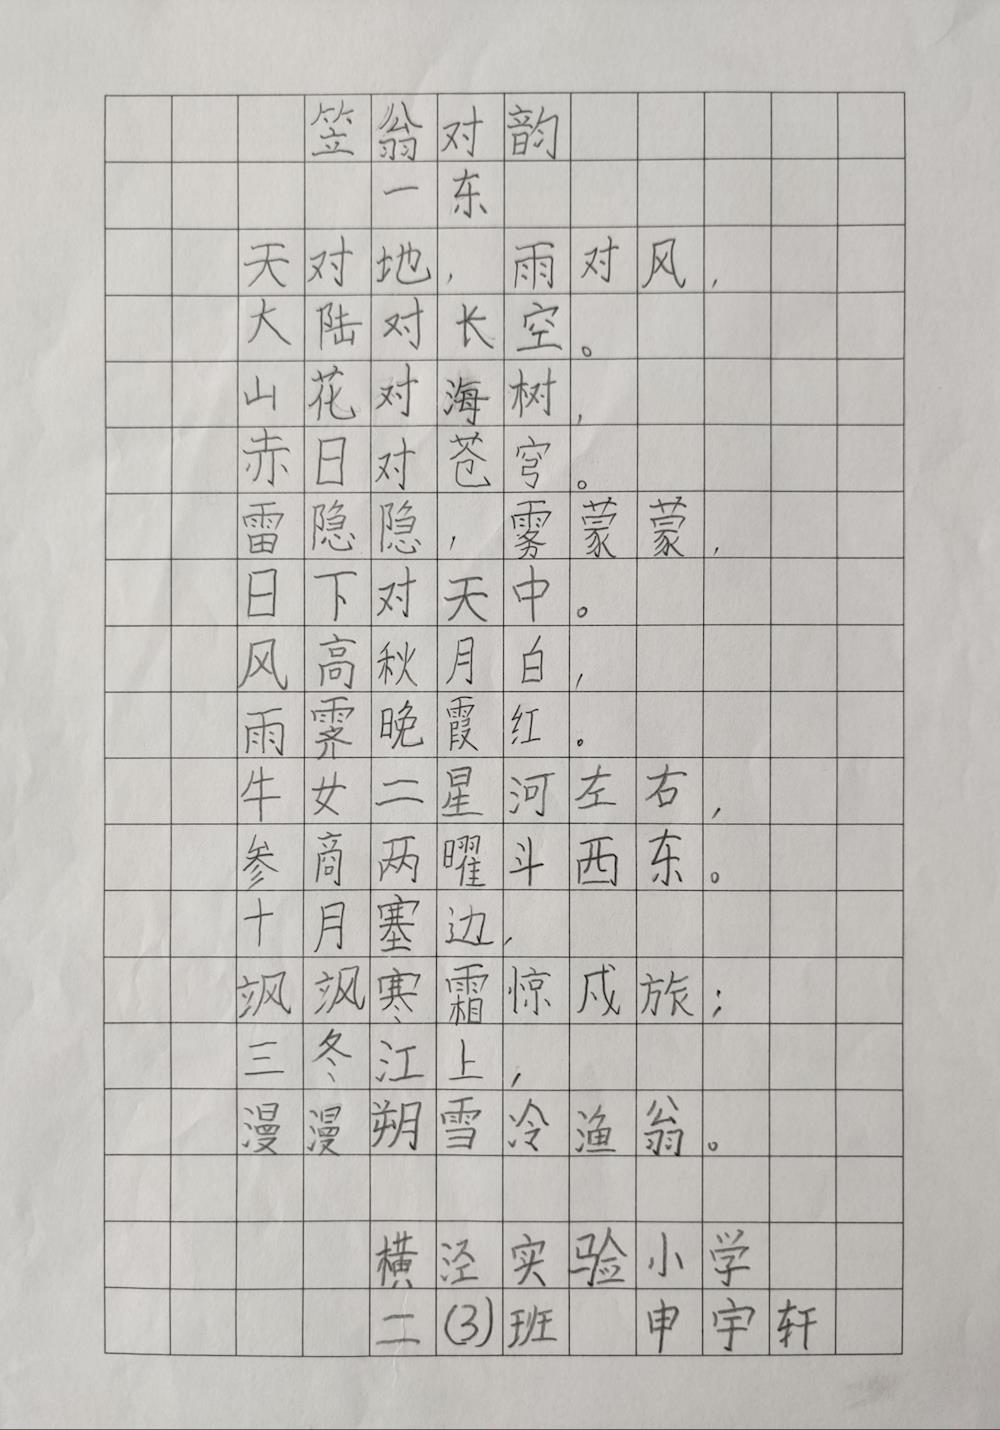 笠翁对韵
一东
天对地，雨对风，
大陆对长空。
山花对海树，
赤日对苍穹。
雷隐隐，雾蒙蒙，
日下对天中。
风高秋月白，
雨霁晚霞红。
牛女二星河左右，
参商两曜斗西东。
十月塞边，
飒飒寒霜惊戍旅；
三冬江上，
漫漫朔雪冷渔翁。
横泾实验小学
二(3)班 申宇轩